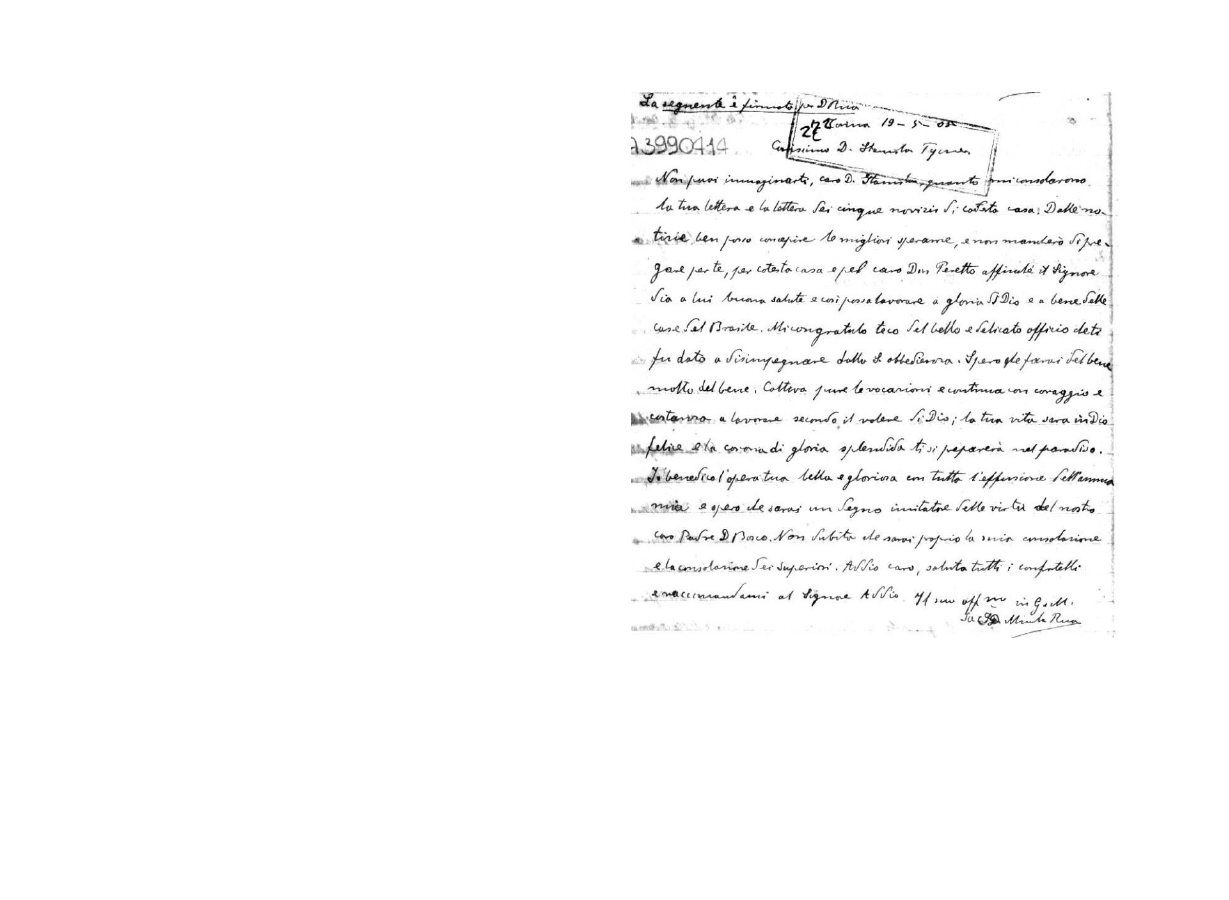 La seguente è firmata per D Rua
27 Torino 19-5-05
A3990414 Carissimo D. Stanislao
Non puoi immaginarti, caro D. Stanislao, quanto mi consolarono
la tua lettera e la lettera dei cinque novizii di codesta casa. Dalle no-
tizie ben posso concepire le migliori speranze, e non mancherò di pre-
gare per te, per cotesta casa e pel caro Don Peretto affinché il Signore
dia a lui buona salute e così possa lavorare a gloria di Dio e a bene delle
case del Brasile. Mi congratulo teco del bello e delicato officio che ti
fu dato a disimpegnare dalla S. obbedienza. Spero che farai del bene
molto del bene. Coltiva pure le vocazioni e continua con coraggio e
costanza a lavorare secondo il volere di Dio; la tua vita sarà in Dio
felice e la corona di gloria splendida ti si preparerà nel paradiso.
Io benedico l'opera tua bella e gloriosa con tutta l'effusione dell'anima
mia e spero che sarai un degno imitatore delle virtù del nostro
caro Padre D Bosco. Non dubito che sarai proprio la mia consolazione
e la consolazione dei superiori. Addio caro, saluta tutti i confratelli
e raccomandami al Signore Addio. Il tuo aff mo in G. e M.
Sac Michele Rua